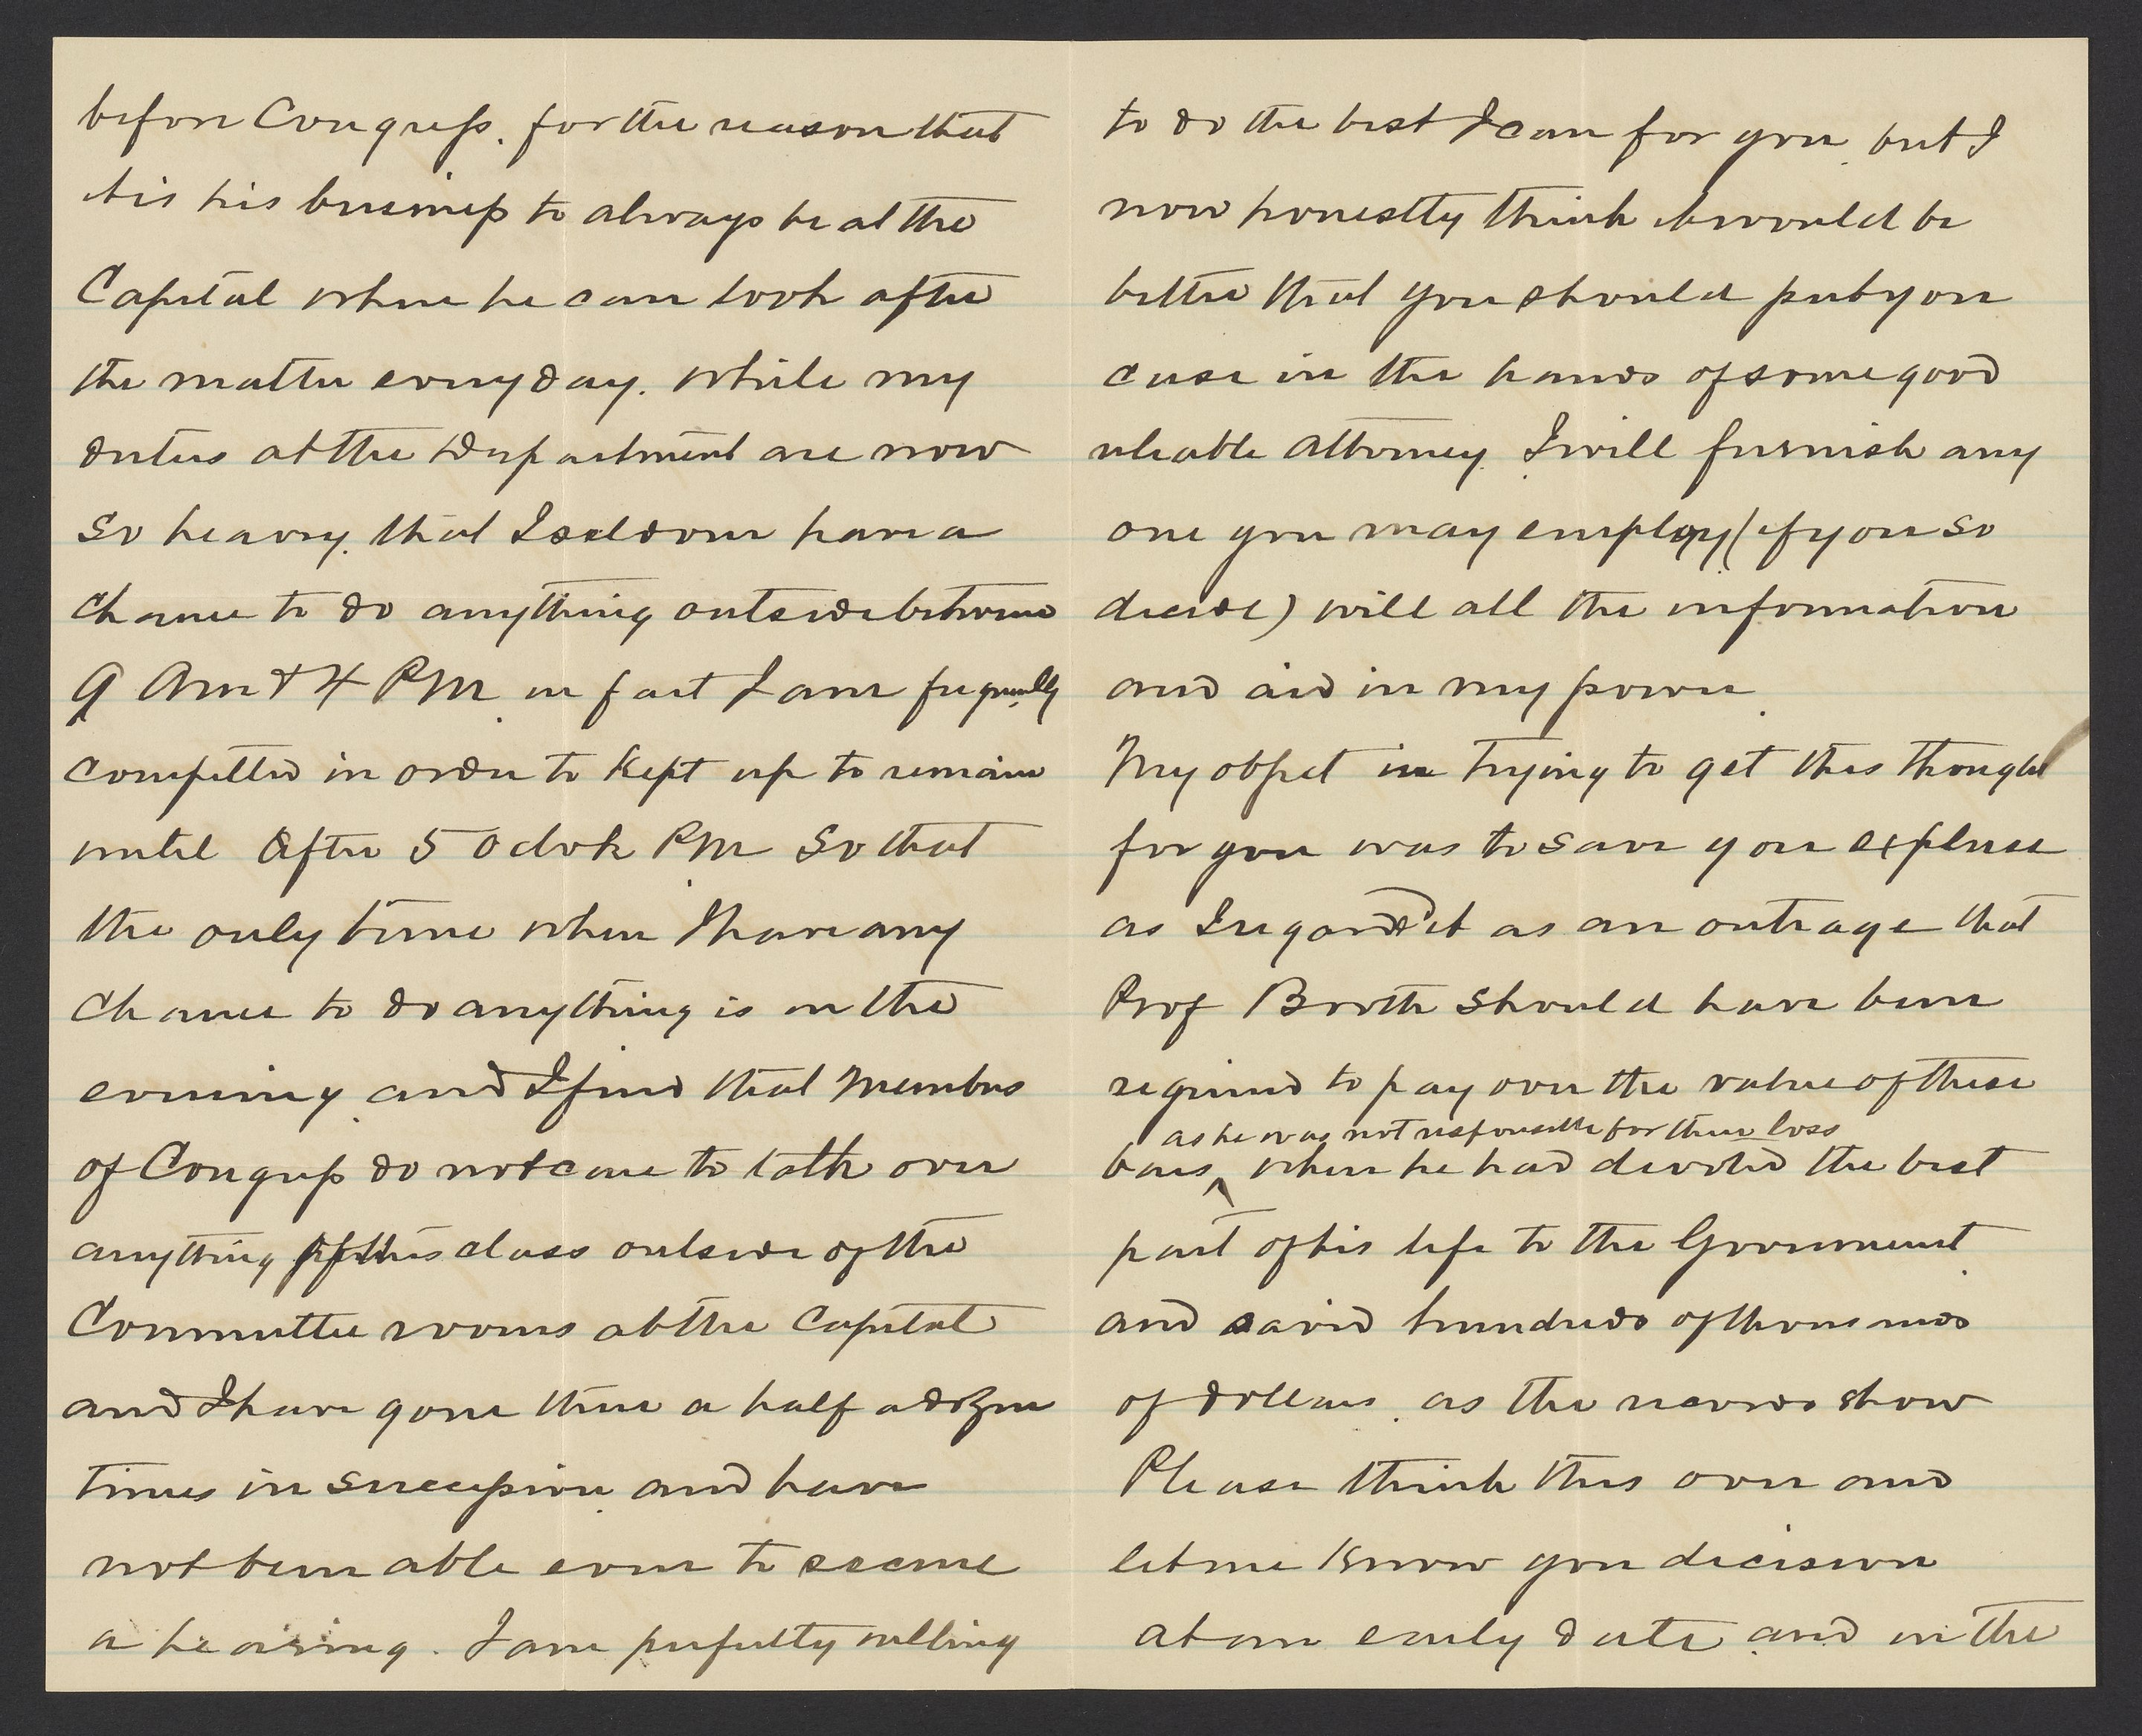 before Congress. for the reason that
it is his business to always be at the
Capital where he can look after
the matter every day. while my
duties at the Department are now
so heavy. that I seldom have a
chance to do anything outside between
9 Am & 4 PM. in fact I am frequently
compelled in order to kept up to remain
until after 5 Oclock PM. So that
the only time when I have any
chance to do anything is in the
evening. and I find that Members
of Congress do not care to talk over
anything of this class outside of the
Committee rooms at the Capital
and I have gone there a half a dozen
times in succession. and have
not been able even to secure
a hearing. I am perfectly willing
to do the best I can for you. but I
now honestly think it would be
better that you should put you
case in the hands of some good
reliable attorney. I will furnish any
one you may employ (if you so
decide) will all the information
and aid in my power.
My object in trying to get this though
for you was to save you expense
as I regarded it as an outrage that
Prof Booth should have been
required to pay over the value of these
as he was not responsible for their loss
bars ^ when he had devoted the best
part of his life to the Government.
and saved hundreds of thousands
of dollars. as the records show
Please think this over and
let me know you decision
at an early date. and in the